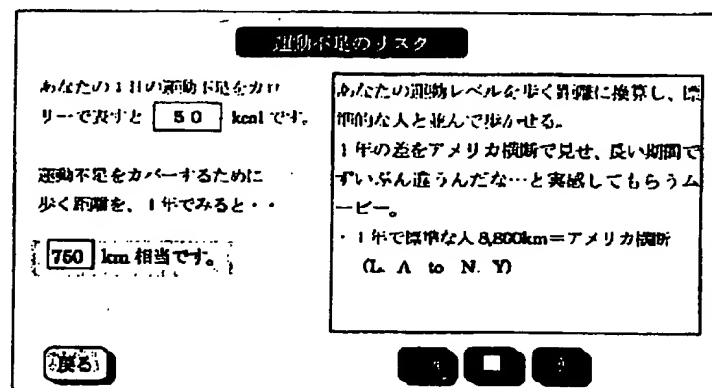 運動不足のリスク
あなたの1日の運動不足をカロ
リーで表すと 50 kcalです。
運動不足をカバーするために
歩く距離を、1年でみると・・
750 km 相当です。
戻る
あなたの運動レベルを歩く距離に換算し、標
準的な人と並んで歩かせる。
1年の差をアメリカ横断で見せ、長い期間で
ずいぶん違うんだな…と実感してもらうム
ービー。
・1年で標準な人 8,800km=アメリカ横断
(L. A to N. Y)